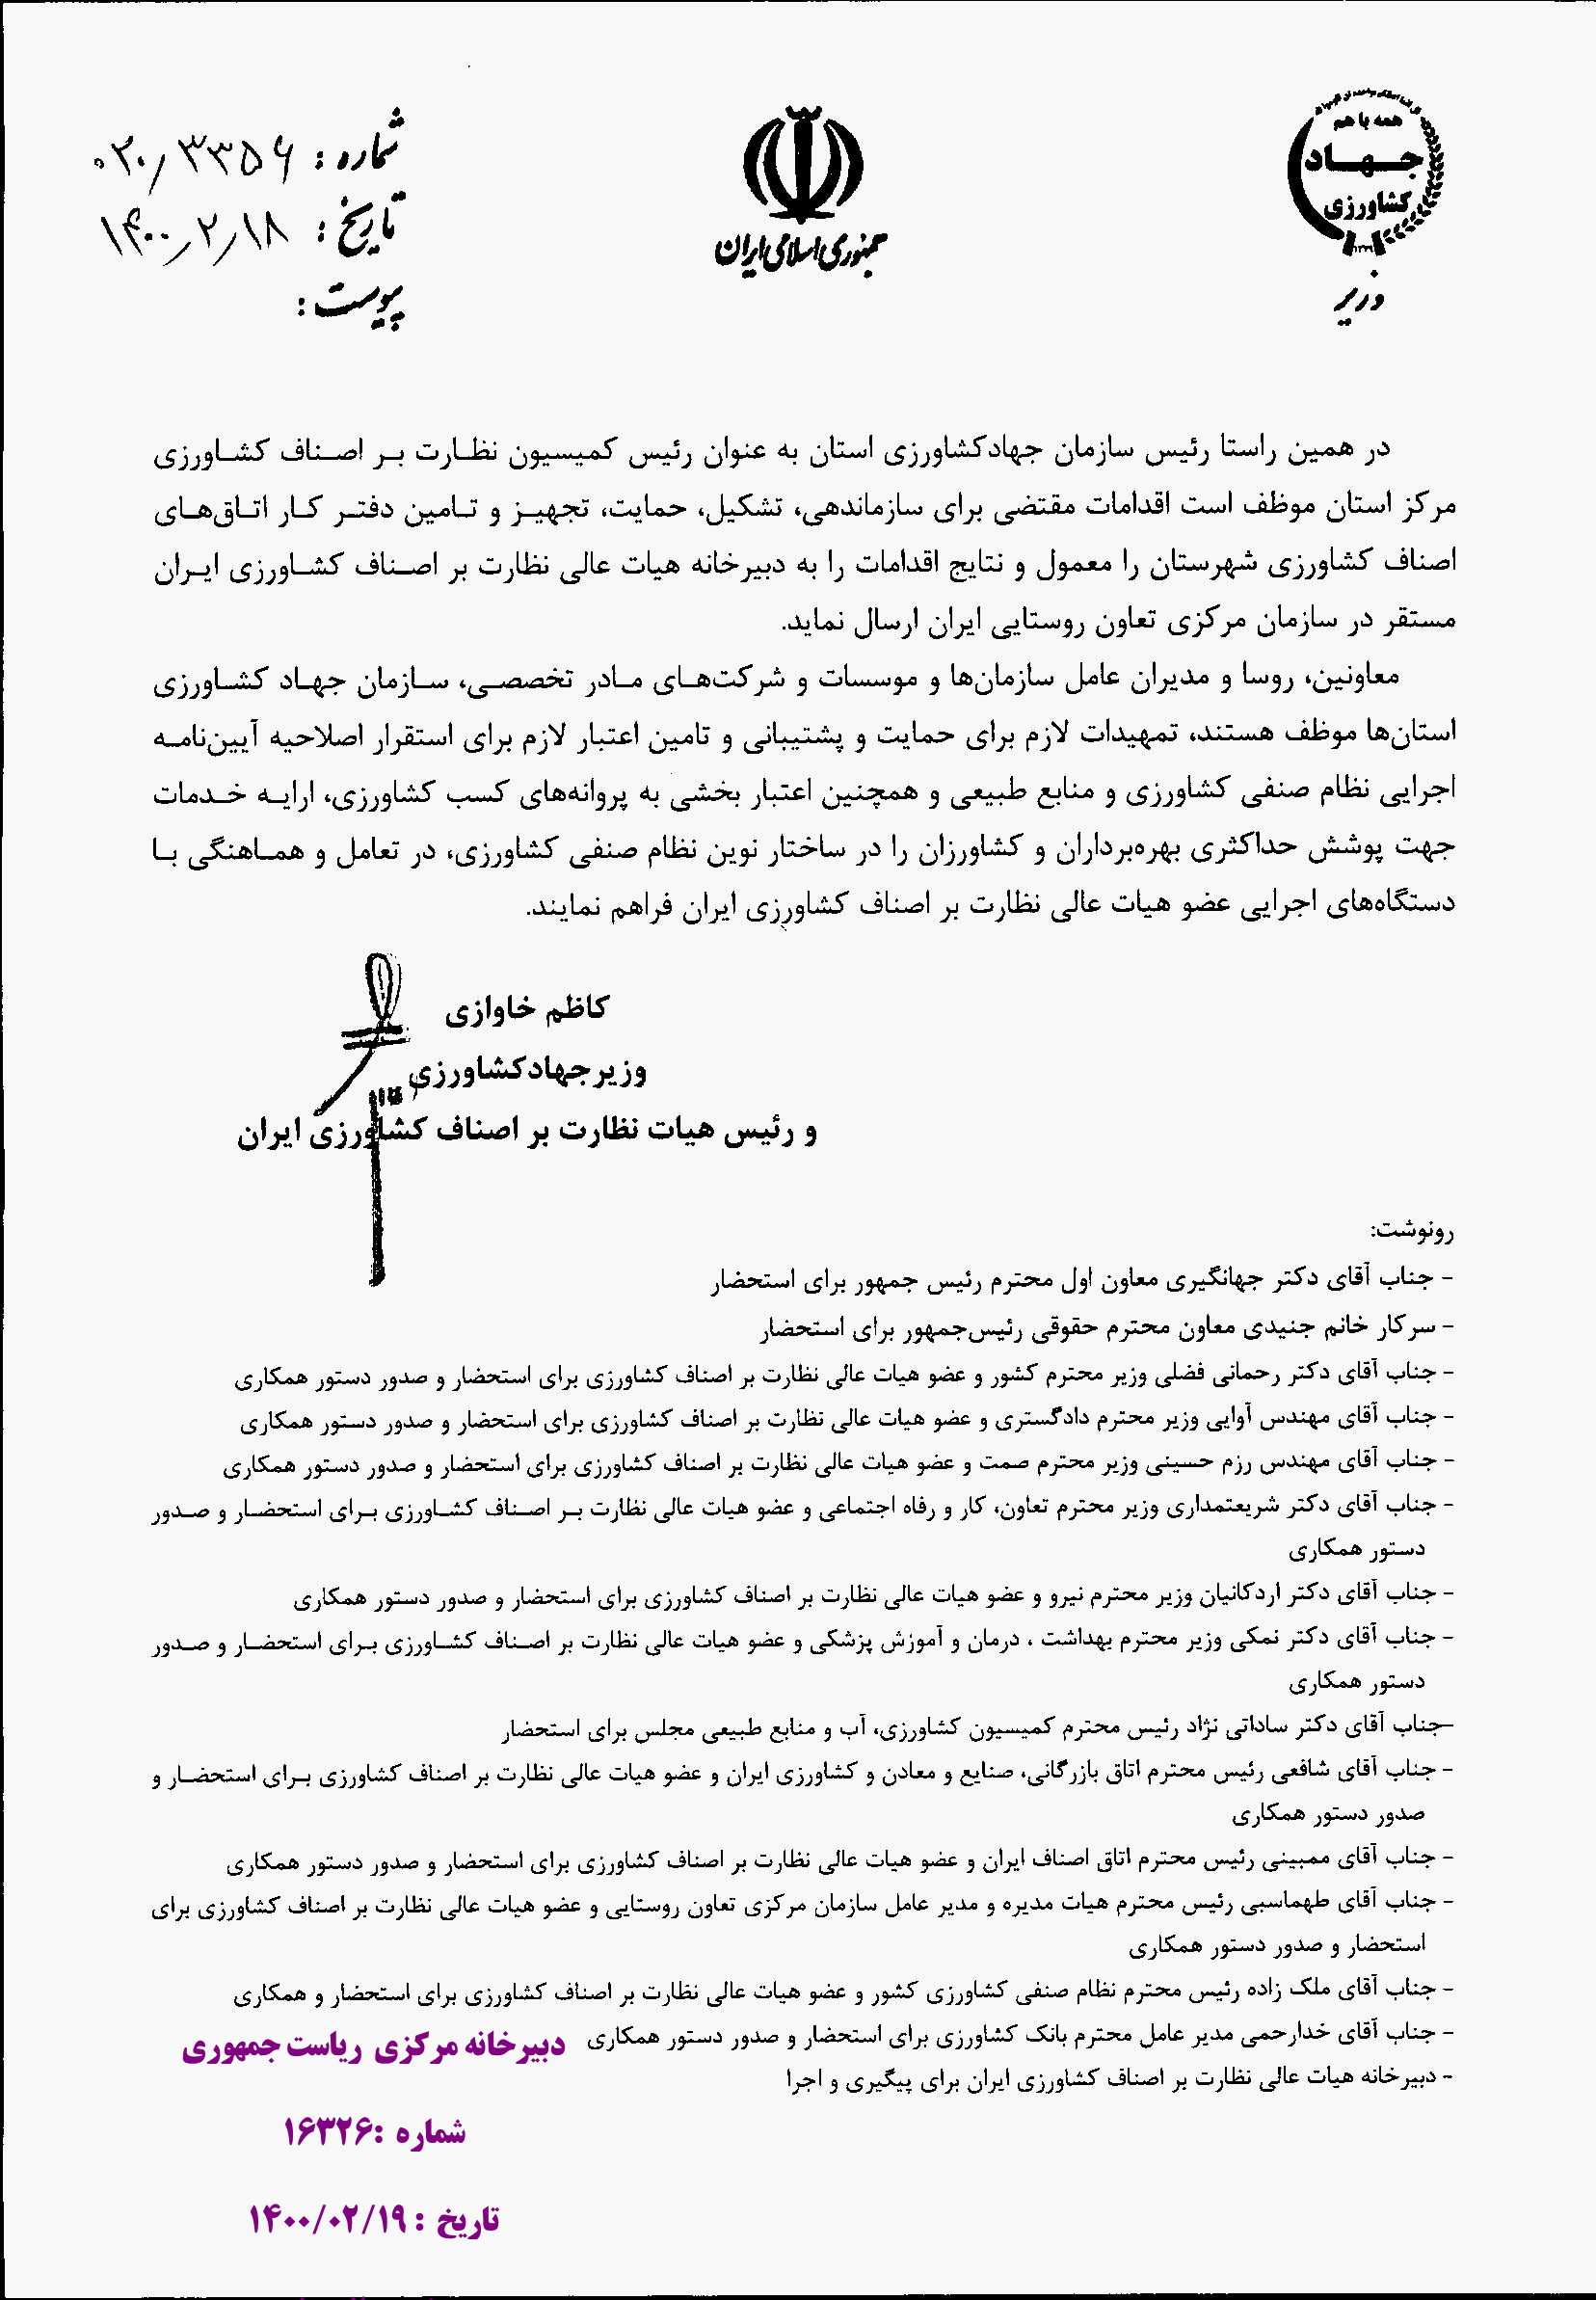 همه با هم
جهاد
کشاورزی
وزیر
جمهوری اسلامی ایران
شماره : ۰۲۰/۳۳۵۶
تاریخ : ۱۴۰۰/۲/۱۸
پیوست :
در همین راستا رئیس سازمان جهادکشاورزی استان به عنوان رئیس کمیسیون نظارت بر اصناف کشاورزی
مرکز استان موظف است اقدامات مقتضی برای سازماندهی، تشکیل، حمایت، تجهیز و تامین دفتر کار اتاق‌های
اصناف کشاورزی شهرستان را معمول و نتایج اقدامات را به دبیرخانه هیات عالی نظارت بر اصناف کشاورزی ایران
مستقر در سازمان مرکزی تعاون روستایی ایران ارسال نماید.
معاونین، روسا و مدیران عامل سازمان‌ها و موسسات و شرکت‌های مادر تخصصی، سازمان جهاد کشاورزی
استان‌ها موظف هستند، تمهیدات لازم برای حمایت و پشتیبانی و تامین اعتبار لازم برای استقرار اصلاحیه آیین‌نامه
اجرایی نظام صنفی کشاورزی و منابع طبیعی و همچنین اعتبار بخشی به پروانه‌های کسب کشاورزی، ارایه خدمات
جهت پوشش حداکثری بهره‌برداران و کشاورزان را در ساختار نوین نظام صنفی کشاورزی، در تعامل و هماهنگی با
دستگاه‌های اجرایی عضو هیات عالی نظارت بر اصناف کشاورزی ایران فراهم نمایند.
کاظم خاوازی
وزیرجهادکشاورزی
و رئیس هیات نظارت بر اصناف کشاورزی ایران
رونوشت:
- جناب آقای دکتر جهانگیری معاون اول محترم رئیس جمهور برای استحضار
- سرکار خانم جنیدی معاون محترم حقوقی رئیس‌جمهور برای استحضار
- جناب آقای دکتر رحمانی فضلی وزیر محترم کشور و عضو هیات عالی نظارت بر اصناف کشاورزی برای استحضار و صدور دستور همکاری
- جناب آقای مهندس آوایی وزیر محترم دادگستری و عضو هیات عالی نظارت بر اصناف کشاورزی برای استحضار و صدور دستور همکاری
- جناب آقای مهندس رزم حسینی وزیر محترم صمت و عضو هیات عالی نظارت بر اصناف کشاورزی برای استحضار و صدور دستور همکاری
- جناب آقای دکتر شریعتمداری وزیر محترم تعاون، کار و رفاه اجتماعی و عضو هیات عالی نظارت بر اصناف کشاورزی برای استحضار و صدور
دستور همکاری
- جناب آقای دکتر اردکانیان وزیر محترم نیرو و عضو هیات عالی نظارت بر اصناف کشاورزی برای استحضار و صدور دستور همکاری
- جناب آقای دکتر نمکی وزیر محترم بهداشت ، درمان و آموزش پزشکی و عضو هیات عالی نظارت بر اصناف کشاورزی برای استحضار و صدور
دستور همکاری
-جناب آقای دکتر ساداتی نژاد رئیس محترم کمیسیون کشاورزی، آب و منابع طبیعی مجلس برای استحضار
- جناب آقای شافعی رئیس محترم اتاق بازرگانی، صنایع و معادن و کشاورزی ایران و عضو هیات عالی نظارت بر اصناف کشاورزی برای استحضار و
صدور دستور همکاری
- جناب آقای ممبینی رئیس محترم اتاق اصناف ایران و عضو هیات عالی نظارت بر اصناف کشاورزی برای استحضار و صدور دستور همکاری
- جناب آقای طهماسبی رئیس محترم هیات مدیره و مدیر عامل سازمان مرکزی تعاون روستایی و عضو هیات عالی نظارت بر اصناف کشاورزی برای
استحضار و صدور دستور همکاری
- جناب آقای ملک زاده رئیس محترم نظام صنفی کشاورزی کشور و عضو هیات عالی نظارت بر اصناف کشاورزی برای استحضار و همکاری
- جناب آقای خدارحمی مدیر عامل محترم بانک کشاورزی برای استحضار و صدور دستور همکاری
- دبیرخانه هیات عالی نظارت بر اصناف کشاورزی ایران برای پیگیری و اجرا
دبیرخانه مرکزی ریاست جمهوری
شماره :۱۶۳۲۶
تاریخ : ۱۴۰۰/۰۲/۱۹